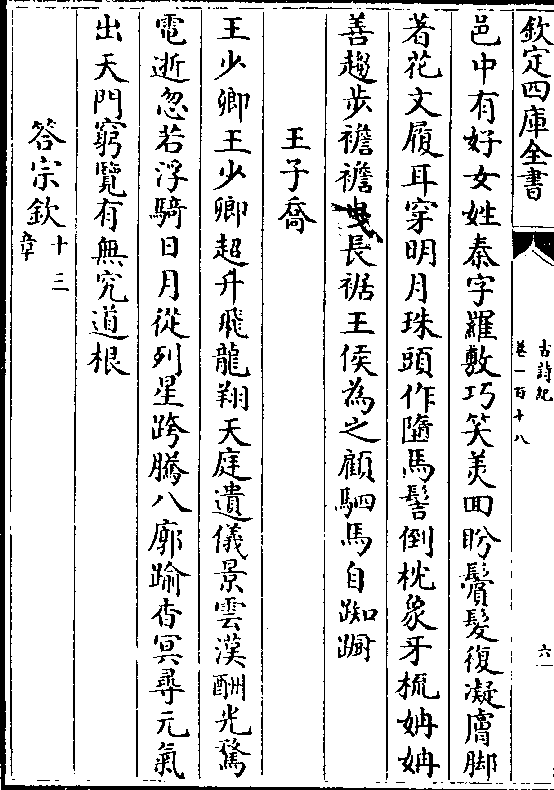 欽定四庫全書
古詩紀
卷一百十八
六
邑中有好女姓秦字羅敷巧笑美回盼鬢髮復凝膚脚
著花文履耳穿明月珠頭作隨馬髻倒枕象牙梳姌姌
善趨步襜襜曳長裾王侯為之顧駟馬自踟蹰
王子喬
王少卿王少卿超升飛龍翔天庭遺儀景雲漢酬光騖
電逝忽若浮騎日月從列星跨騰八廓踰杳冥尋元氣
出天門窮覽有無究道根
答宗欽十三
章